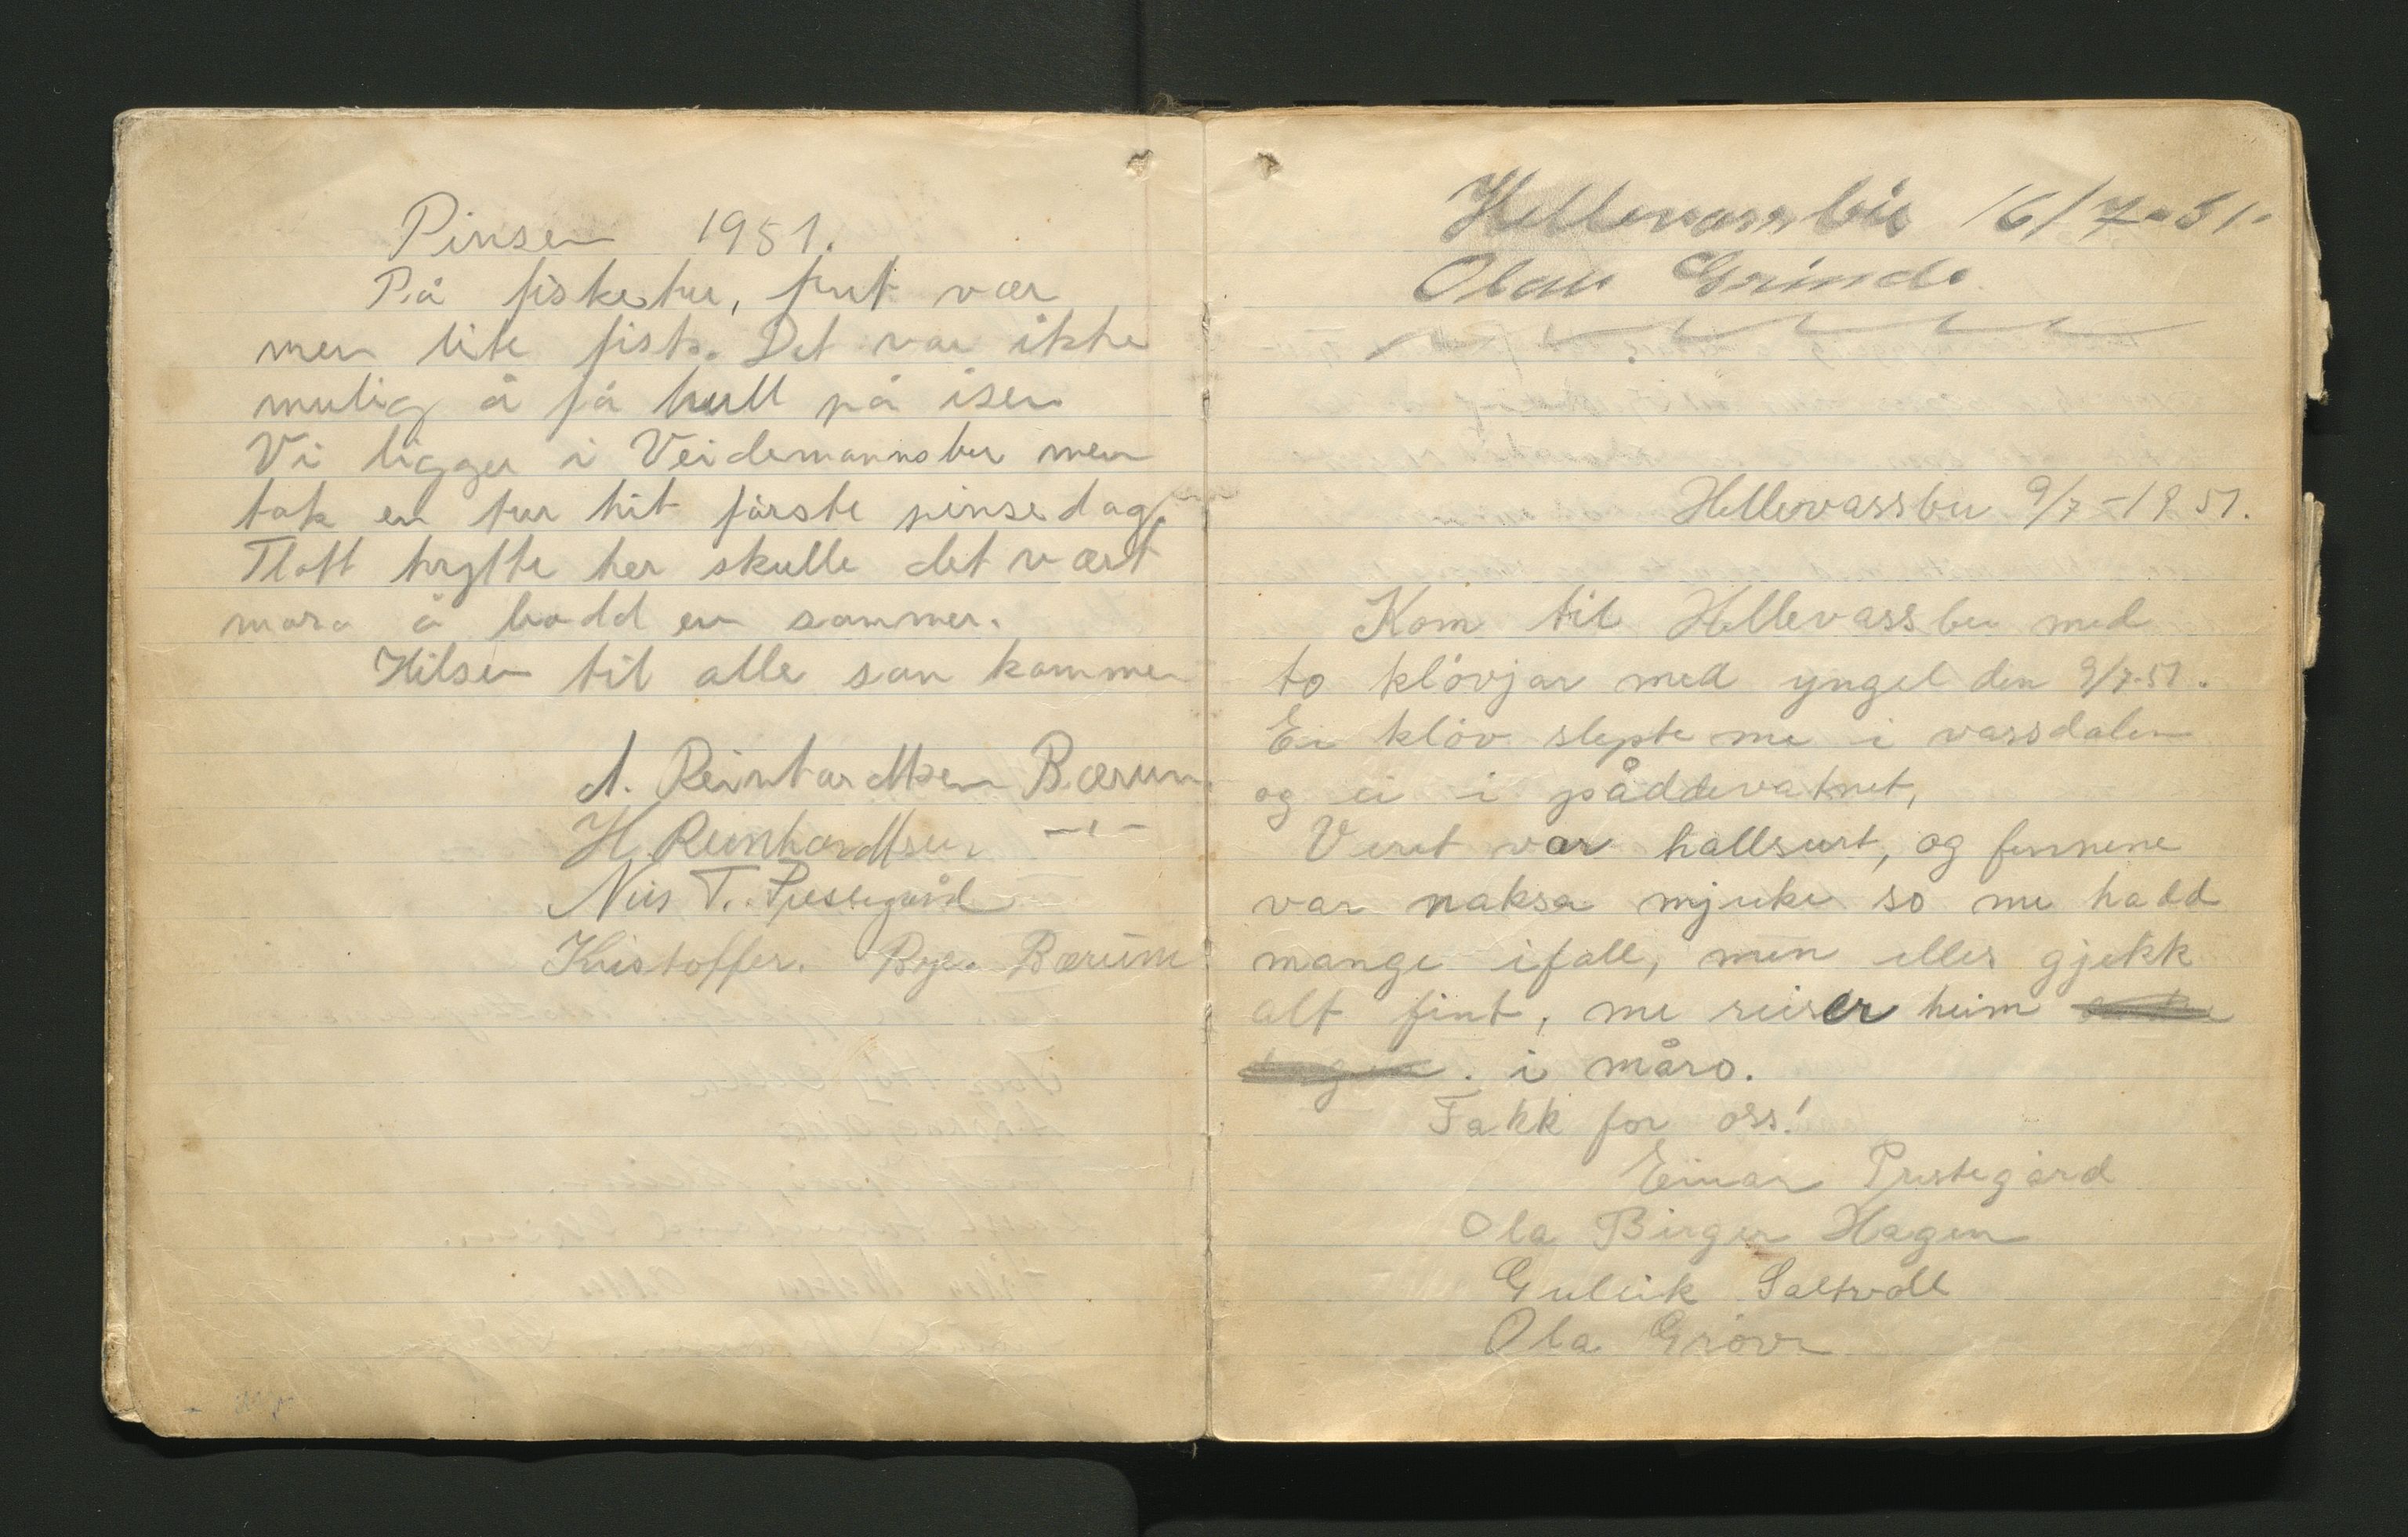 Pinsen 1951.
På fisketur, fint vær
men lite fisk. Det var ikke
mulig å få hull på isen
Vi ligger i Veidemannsbu men
tok en tur hit første pinsedag.
Flott hytte her skulle det vært
mora å bodd en sommer.
Hilsen til alle som kommer
A. Reinhardtsen Bærum.
H. Reinhardtsen -"-
Nils T. Prestegård
Kristoffer. Bye. Bærum
Hellevassbu 16/7-51.
Olav Grinde.
Hellevassbu 9/7-1951.
Kom til Hellevassbu med
to kløvjar med yngel den 9/7-51.
Ei kløv slepte me i vassdalen
og ei i påddevatnet,
Veret var hallsurt, og fennene
var naksa mjuke so me hadd
mange ifall, men elles gjekk
alt fint, me reiser heim
i måro.
Takk for oss!
Einar Prestegård
Ola Birger Hagen
Gulleik Saltvoll
Ola Grøve